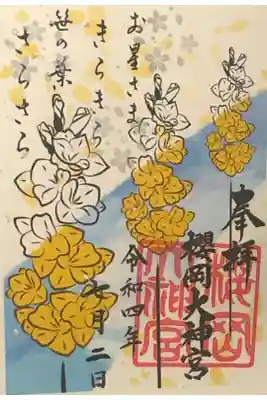 奉拝
櫻岡大神宮
令和四年
七月二日
お星さま
きらきら
笹の葉
さらさら